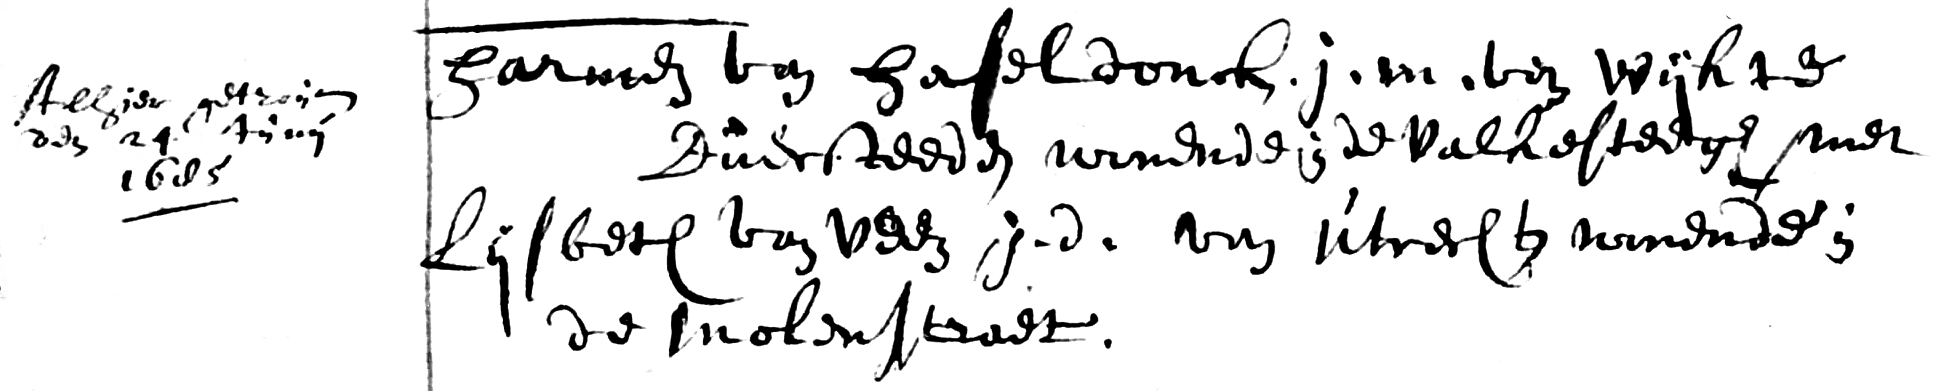 Alhier getrout
den 24 Juny
1685
Harmen van Haseldonck. j. m. van Wijk te
Duersteeden wonende in de Valkesteege met
Lijsbeth van Veen j. d. van Utrecht wonende in
de Molenstraet.